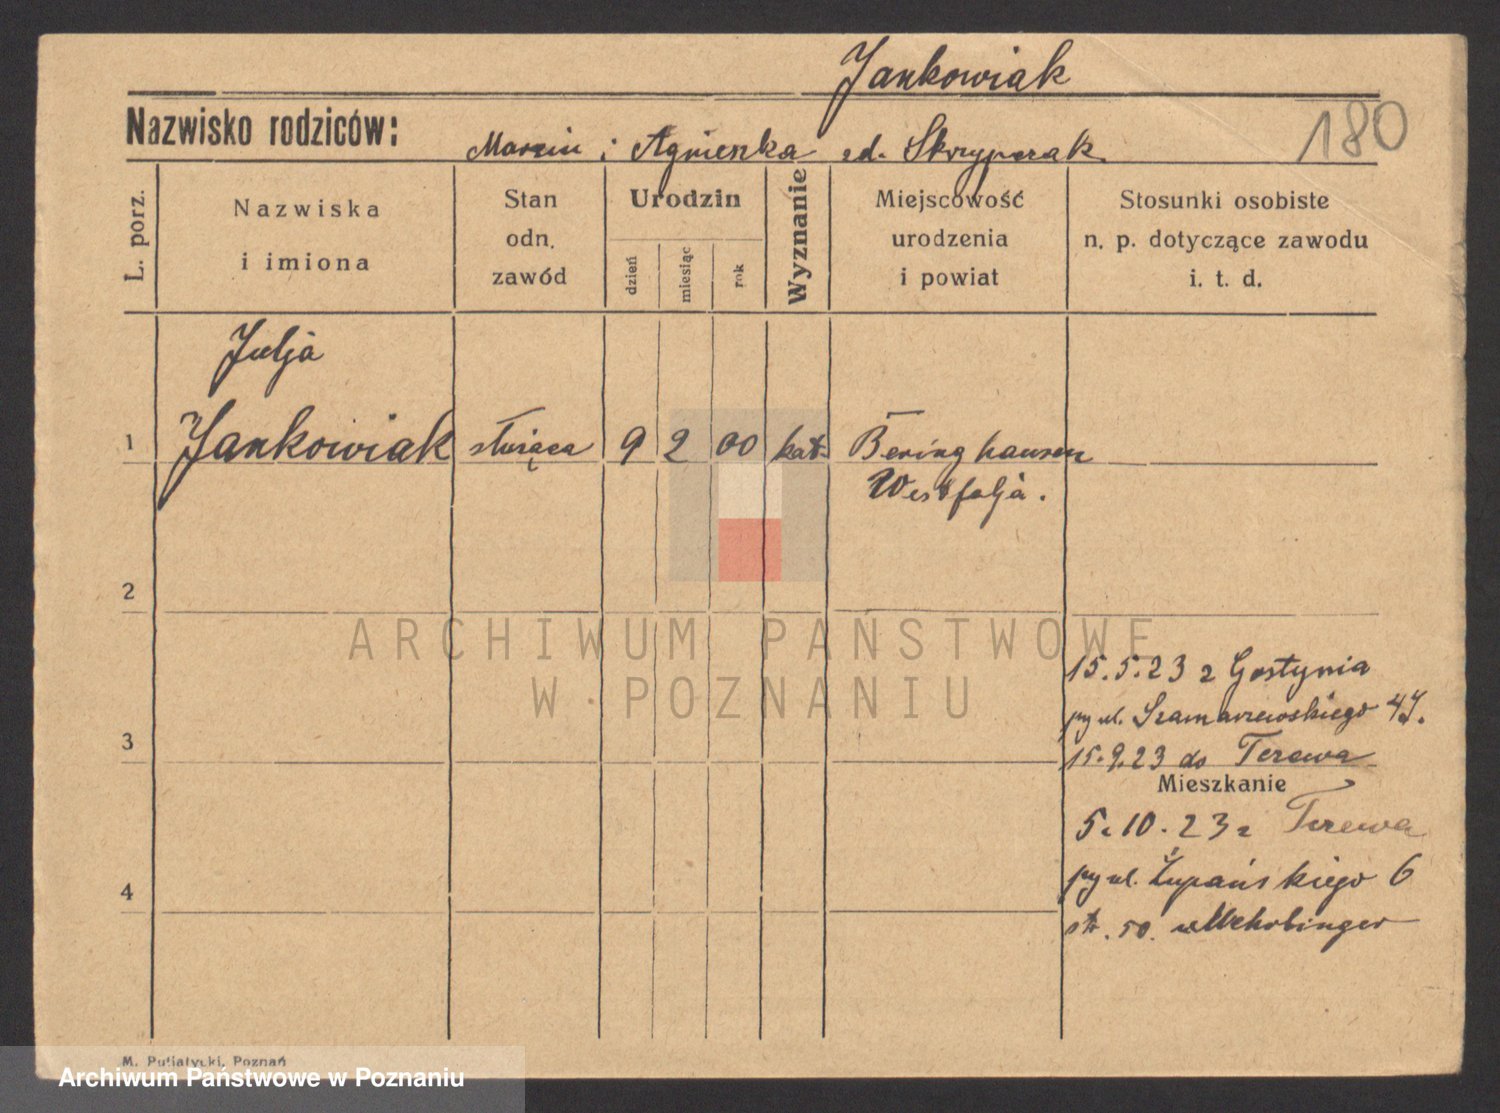 Jankowiak
Nazwisko rodziców:
Marcin i Agnieszka zd. Skrzypczak
180
L. porz.
Nazwiska
i imiona
Stan
odn.
zawód
Urodzin
dzień
miesiąc
rok
Wyznanie
Miejscowość
urodzenia
i powiat
Stosunki osobiste
n. p. dotyczące zawodu
i. t. d.
Julja
1 Jankowiak służąca 9 2 00 kat. Beringhausen
Westfalja.
2
ARCHIWUM PAŃSTWOWE
W POZNANIU
15.5.23 z Gostynia
ul. Szamarzewskiego
3
15.9.23 do Terewa
Mieszkanie
5.10.23 z Terewa
4
ul. Żupańskiego 6
str. 50.
M. Putiatycki, Poznań
Archiwum Państwowe w Poznaniu